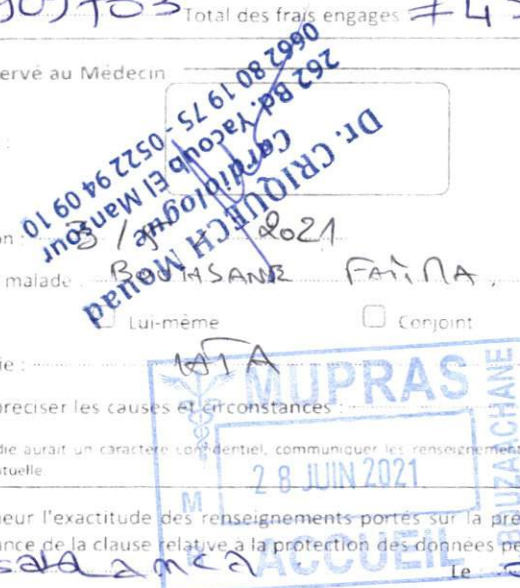 Total des frais engages
ervé au Médecin
Dr. CRIQUECH Mouad
Cardiologue
262 Bd. Yacoub El Mansour
0662 80 19 75 - 0522 94 09 10
on : 2021
malade : BOUHSANE FATIMA
Lui-même Conjoint
ie : HTA
préciser les causes et circonstances :
die aurait un caractère confidentiel, communiquer les renseignement
tuelle
MUPRAS
28 JUIN 2021
ACCUEIL
BOUZAACHANE
M
neur l'exactitude des renseignements portés sur la pré
ance de la clause relative à la protection des données pe
Le